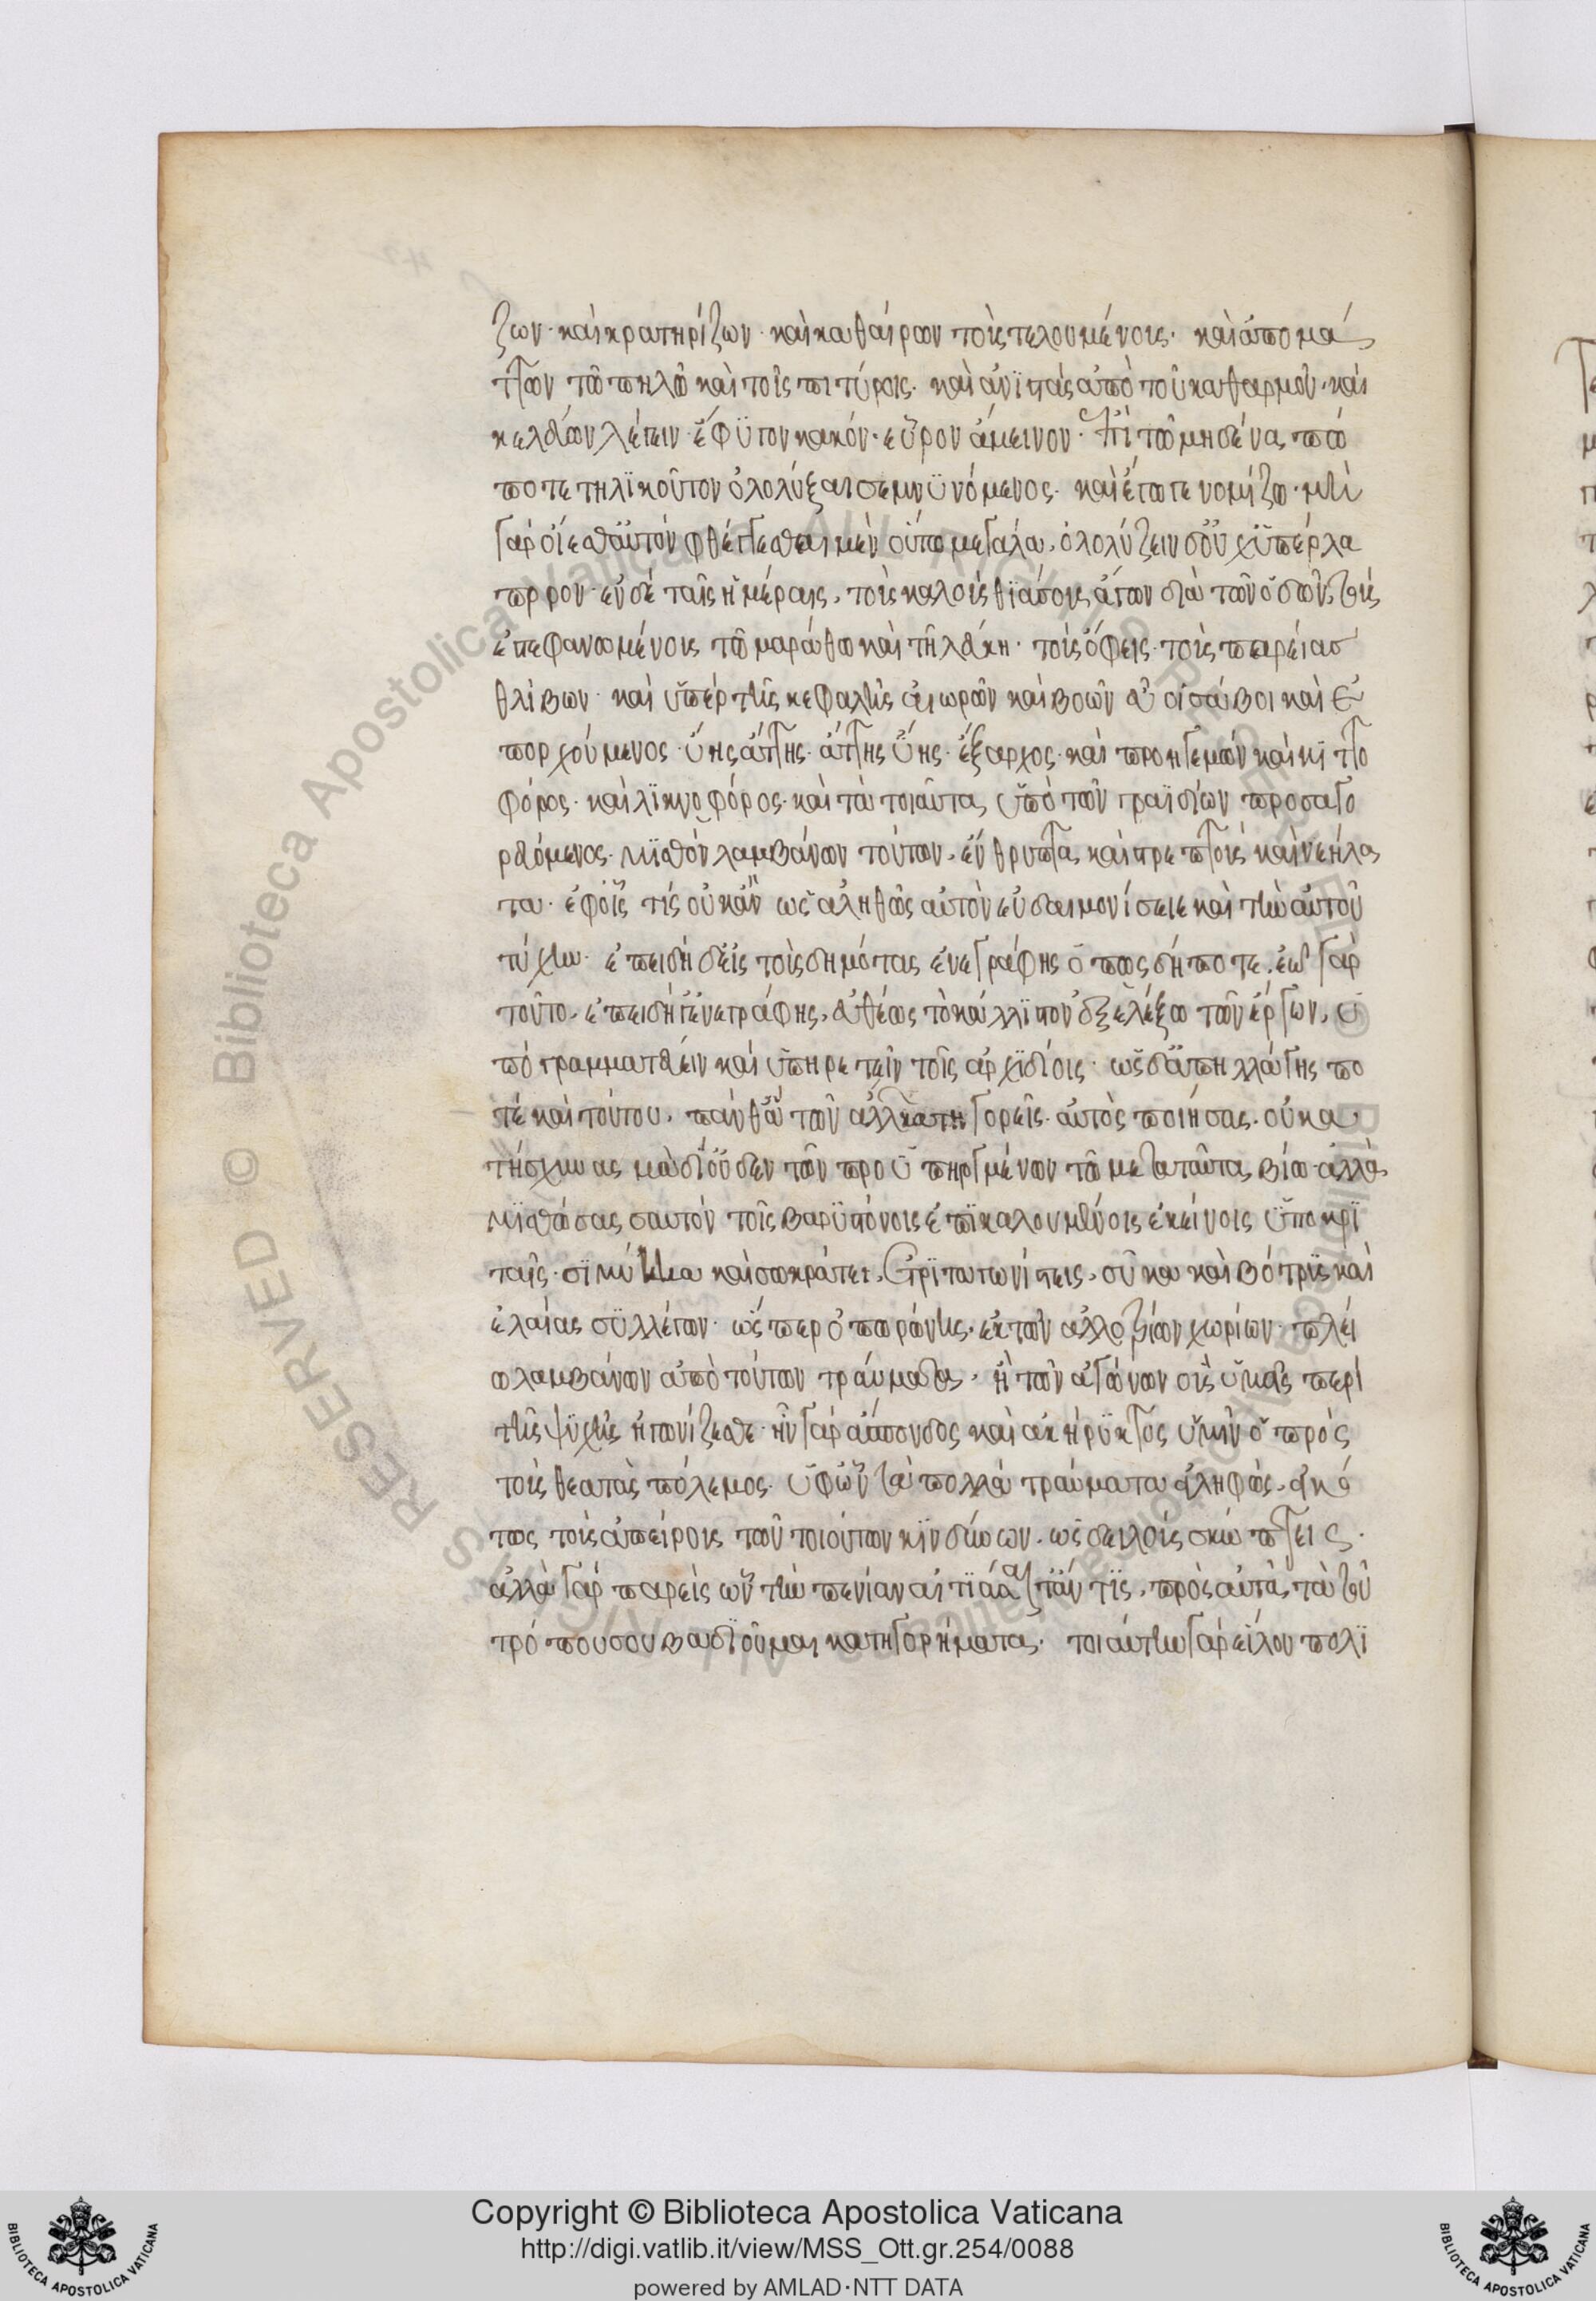 ζων· καὶ κρατηρίζων· καὶ καθαίρων τοὺς τελουμένους· καὶ ἀπομά
ττων τῶ πηλῶ καὶ τοῖς πιτύροις· καὶ ἀνϊστὰς ἀπὸ τοῦ καθαρμοῦ, καὶ
κελεύων λέγειν· ἔφϋγον κακόν· εὗρον ἄμεινον· ἐπὶ τῶ μηδένα πώ
ποτε τηλϊκοῦτον ὀλολύξαι σεμνϋνόμενος· καὶ ἔγωγε νομίζω· μὴ
γὰρ οἴεσθ αὐτὸν φθέγγεσθαι μὲν οὕτω μεγάλα, ὀλολύζειν δ οὐχ ὑπέρλα
προν· ἐν δὲ ταῖς ἡμέραις, τοὺς καλοὺς θϊάσους ἄγων διὰ τῶν ὁδῶν, τοὺς
ἐστεφανωμένους τῶ μαράθω καὶ τῆ λεύκη· τοὺς ὄφεις τοὺς παρείασ
θλίβων· καὶ ὑπὲρ τῆς κεφαλῆς αἰωρῶν καὶ βοῶν εὐοῖ σάβοι καὶ ἐ
πορχούμενος ὑῆς ἄττης· ἄττης ὑῆς· ἔξαρχος· καὶ προηγεμὼν καὶ κϊττο
φόρος· καὶ λϊκνοφόρος· καὶ τὰ τοιαῦτα ὑπὸ τῶν γραϊδίων προσαγο
ρευόμενος· μϊσθὸν λαμβάνων τούτων, ἔνθρυπτα καὶ στρεπτοὺς καὶ νεήλα
τα· ἐφ οἷς τίς οὐκ ἂν ὡς ἀληθῶς αὑτὸν εὐδαιμονίσειε καὶ τὴν αὑτοῦ
τύχην· ἐπειδὴ δ εἰς τοὺς δημότας ἐνεγράφης ὁπωσδήποτε, ἐῶ γὰρ
τοῦτο, ἐπειδή γ ἐνεγράφης, εὐθέως τὸ κάλλϊστον ἐξελέξω τῶν ἔργων, ὑ
πογραμματεύειν καὶ ὑπηρετεῖν τοῖς ἀρχϊδίοις· ὡς δ ἀπηλλάγης πο
τὲ καὶ τούτου, πάνθ ἃ τῶν ἄλλων κατηγορεῖς αὐτὸς ποιήσας, οὐ κα
τήσχυνας μὰ δί οὐδὲν τῶν προϋπηργμένων τῶ μετὰ ταῦτα βίω· ἀλλὰ
μϊσθώσας σαυτὸν τοῖς βαρϋστόνοις ἐπϊκαλουμένοις ἐκείνοις ὑποκρϊ
ταῖς· σϊμύκκα καὶ σωκράτει, ἐτρϊταγωνίστεις, σῦκα καὶ βότρϋς καὶ
ἐλαίας σϋλλέγων· ὥσπερ ὀπωρώνης, ἐκ τῶν ἀλλοτρίων χωρίων· πλεί
ω λαμβάνων ἀπὸ τούτων τραύματα, ἢ τῶν ἀγώνων οὓς ὑμεῖς περὶ
τῆς ψϋχῆς ἠγωνίζεσθε· ἦν γὰρ ἄσπονδος καὶ ἀκήρϋκτος ὑμῖν ὁ πρὸς
τοὺς θεατὰς πόλεμος· ὑφ ὧν τὰ πολλὰ τραύματα εἰληφὼς, εἰκό
τως τοὺς ἀπείρους τῶν τοιούτων κϊνδύνων, ὡς δειλοὺς σκώπτεις·
ἀλλὰ γὰρ παρεὶς ὧν τὴν πενίαν αἰτϊάσαιτ ἄν τϊς, πρὸς αὐτὰ τὰ τοῦ
τρόπου σου βαδϊοῦμαι κατηγορήματα· τοιαύτην γὰρ εἵλου πολϊ
Copyright © Biblioteca Apostolica Vaticana
http://digi.vatlib.it/view/MSS_Ott.gr.254/0088
powered by AMLAD·NTT DATA